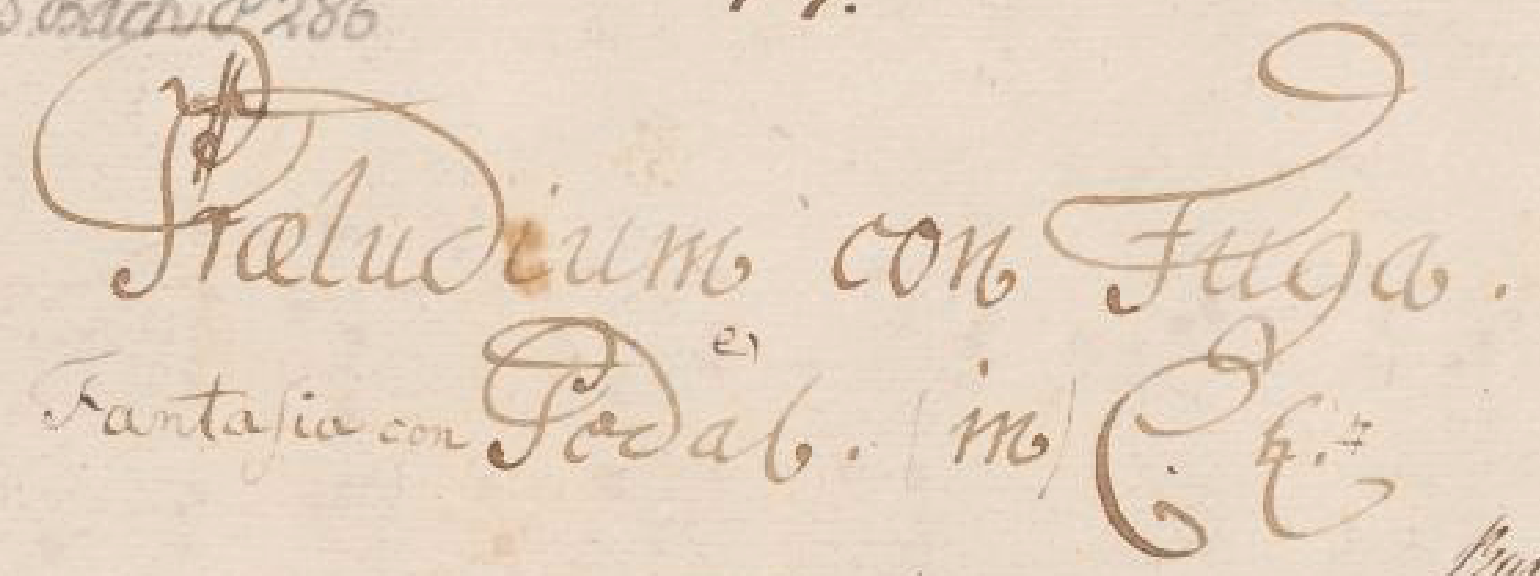 Bach P 286
Præludium con Fuga.
Fantasia con Pedal. (in) C.